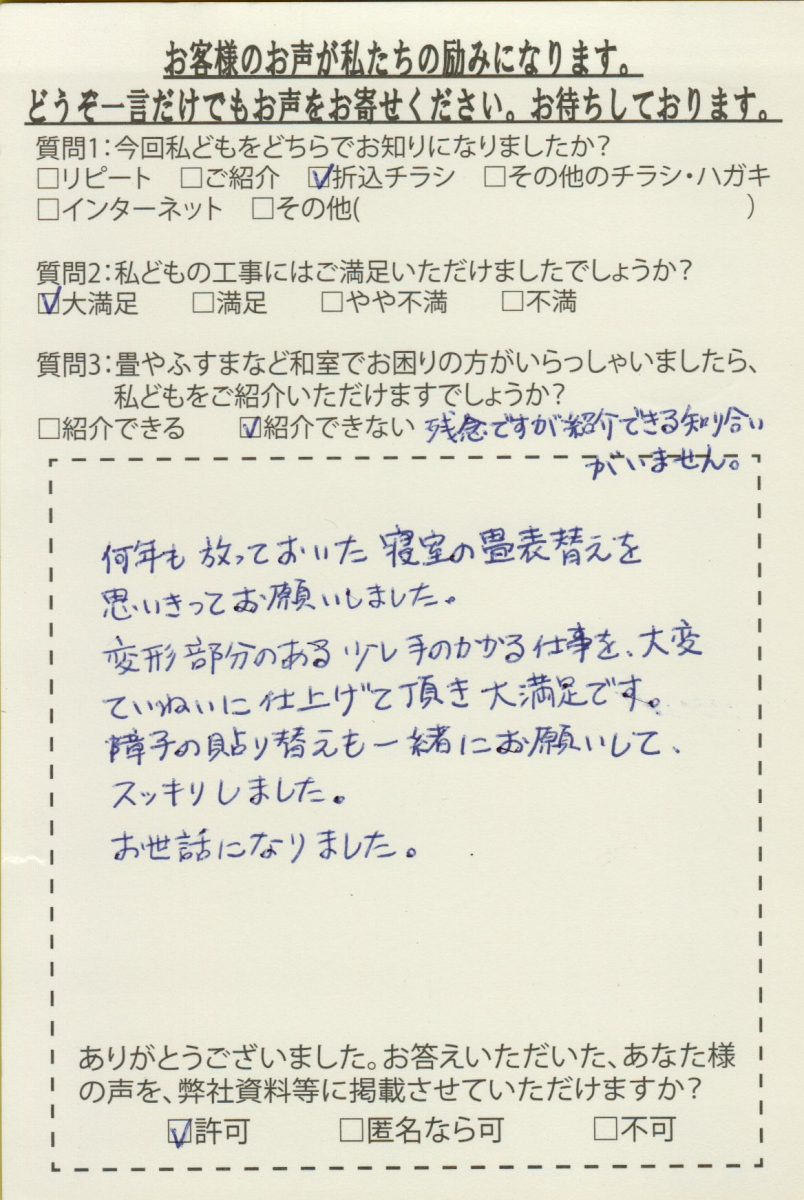 お客様のお声が私たちの励みになります。
どうぞ一言だけでもお声をお寄せください。お待ちしております。
質問1:今回私どもをどちらでお知りになりましたか?
□リピート □ご紹介 ☑折込チラシ □その他のチラシ・ハガキ
□インターネット □その他( )
質問2:私どもの工事にはご満足いただけましたでしょうか?
☑大満足 □満足 □やや不満 □不満
質問3:畳やふすまなど和室でお困りの方がいらっしゃいましたら、
私どもをご紹介いただけますでしょうか?
□紹介できる ☑紹介できない 残念ですが紹介できる知り合い
がいません。
何年も放っておいた寝室の畳表替えを
思いきってお願いしました。
変形部分のある少し手のかかる仕事を、大変
ていねいに仕上げて頂き大満足です。
障子の貼り替えも一緒にお願いして、
スッキリしました。
お世話になりました。
ありがとうございました。お答えいただいた、あなた様
の声を、弊社資料等に掲載させていただけますか?
☑許可 □匿名なら可 □不可